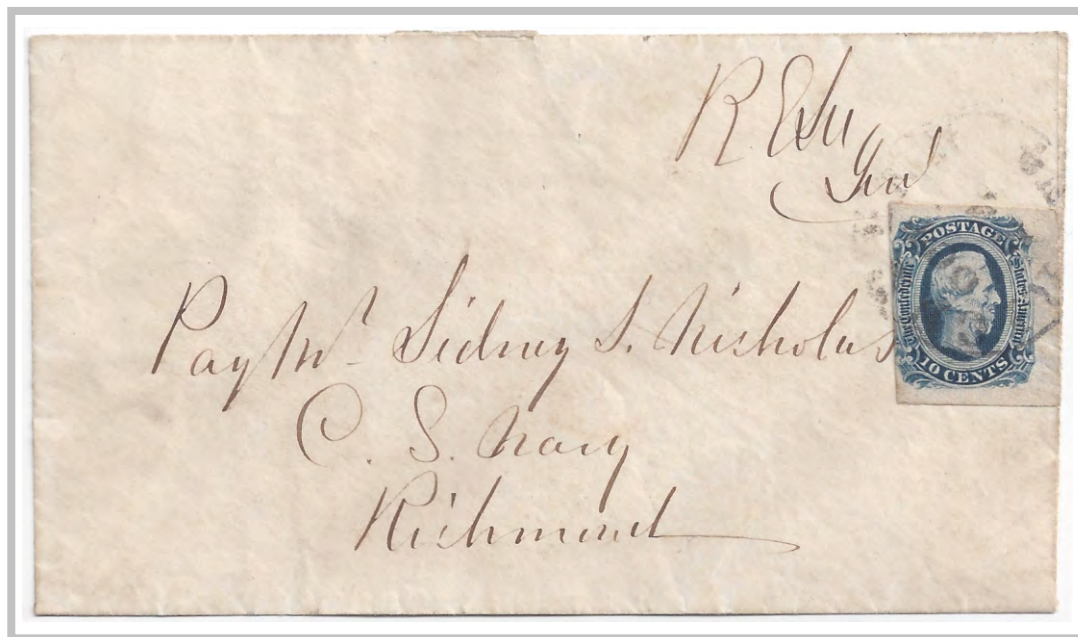 R. E. Lee
Genl
POSTAGE
The Confederate States of America
10 CENTS
PayMr Sidney S. Nicholas
C. S. Navy
Richmond